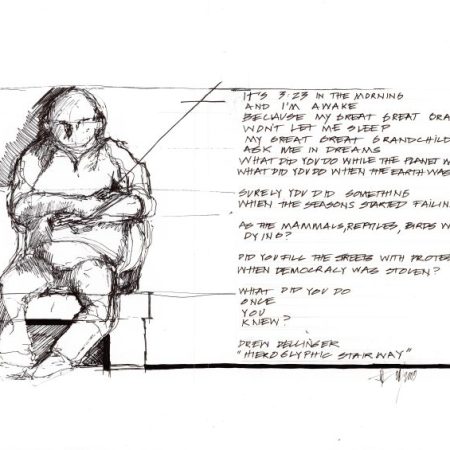 IT'S 3:23 IN THE MORNING
AND I'M AWAKE
BECAUSE MY GREAT GREAT GRA
WON'T LET ME SLEEP
MY GREAT GREAT GRANDCHILD
ASK ME IN DREAMS
WHAT DID YOU DO WHILE THE PLANET W
WHAT DID YOU DO WHEN THE EARTH WAS
SURELY YOU DID SOMETHING
WHEN THE SEASONS STARTED FAILIN
AS THE MAMMALS, REPTILES, BIRDS W
DYING?
DID YOU FILL THE STREETS WITH PROTES
WHEN DEMOCRACY WAS STOLEN?
WHAT DID YOU DO
ONCE
YOU
KNEW?
DREW DELLINGER
"HIEROGLYPHIC STAIRWAY"